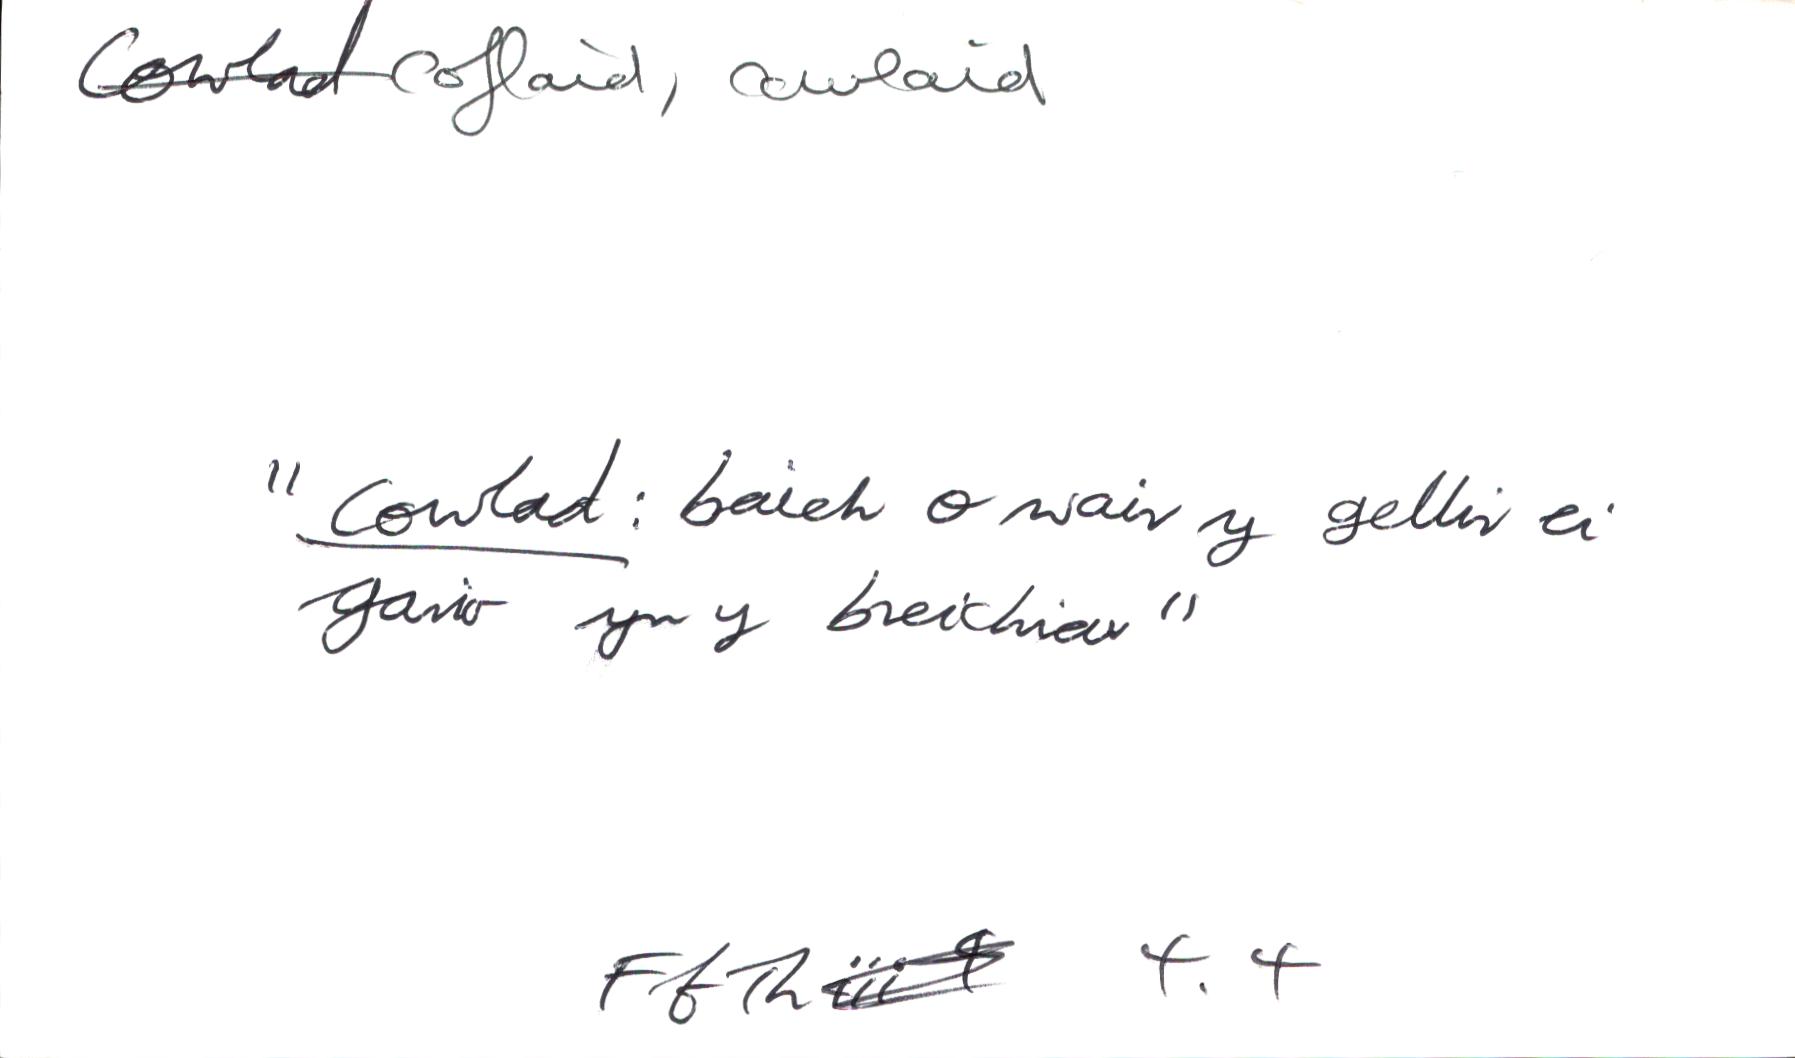 Cowlad coflaid, cowlaid
"Cowlad: baich o wair y gellir ei
gario yn y breichiau"
FfTh iii 4 4.4